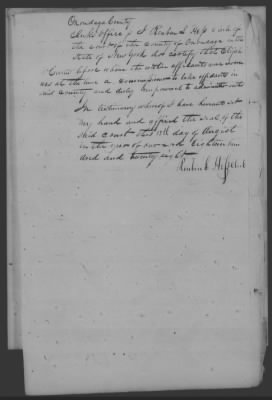 Onondaga County
Clerks office } I Reuben L Hess clerk of
the courts of the County of Onondaga in the
State of New York do certify that Elijah
before whom the within affidavits were sworn
was at the time a commissioner to take affidavits in
said County and duly empowered to administer oaths
In testimony whereof I have hereunto set
my hand and affixed the seal of the
said court this 13th day of August
in the year of our Lord Eighteen hun
dred and twenty eight
Reuben L Hess clerk